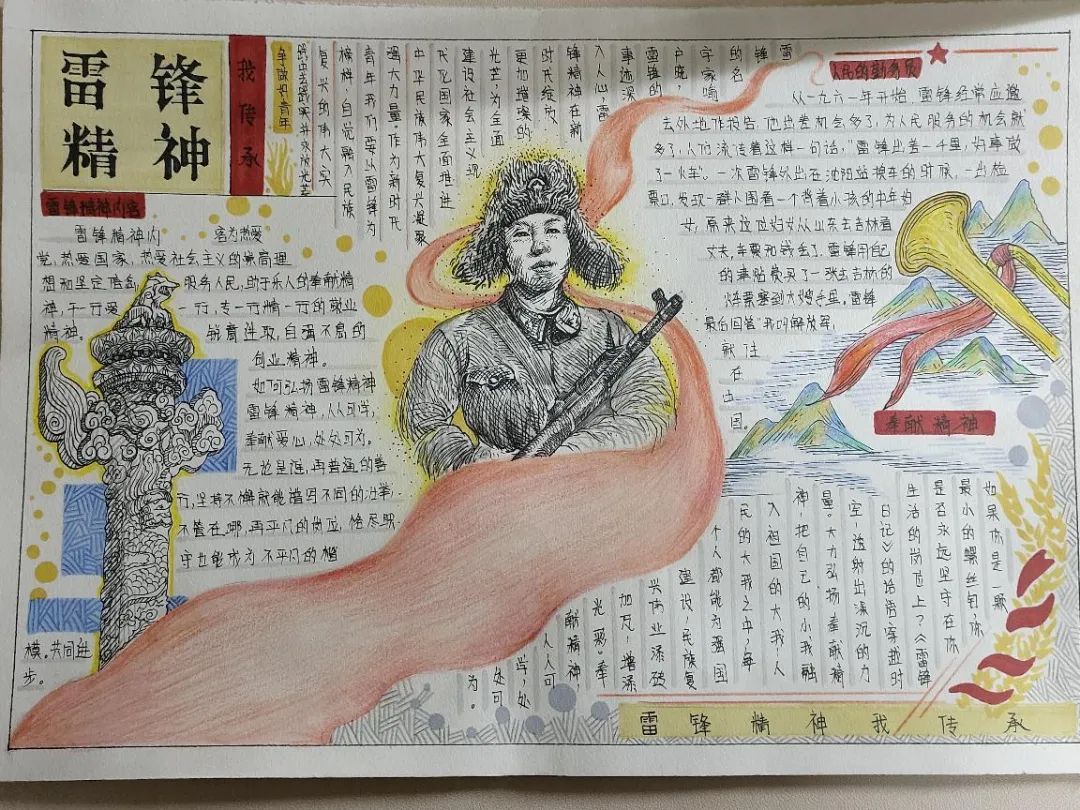 雷锋
精神
我传承
争做好青年
雷锋精神内容
雷锋精神内 容为热爱
党,热爱国家,热爱社会主义的崇高理
想和坚定信念 服务人民,助于乐人的奉献精
神,干一行爱 一行,专一行精一行的敬业
精神。 锐意进取,自强不息的
创业精神。
如何弘扬雷锋精神
雷锋精神,人人可学;
奉献爱心,处处可为。
无论是谁,再普通的善
行,坚持不懈就能谱写不同的壮举,
不管在哪,再平凡的岗位,恪尽职
守也能成为不平凡的楷
模。共同进
步。
雷锋
的名
字家喻
户晓,
雷锋的
事迹深
入人心,雷
锋精神在新
时代绽放
更加璀璨的
光芒,为全面
建设社会主义现
代化国家全面推进
中华民族伟大复兴凝聚
强大力量。作为新时代
青年我们要以雷锋为
榜样,自觉融入民族
复兴的伟大实
人民的勤务员
从一九六一年开始,雷锋经常应邀
去外地作报告,他出差机会多了,为人民服务的机会就
多了,人们流传着这样一句话:"雷锋出差一千里,好事做
了一火车"。一次雷锋外出在沈阳站换车的时候,一出检
票口,发现一群人围着一个背着小孩的中年妇
女,原来这位妇女从山东去吉林看
丈夫,车票和钱丢了,雷锋用自己
的津贴费买了一张去吉林的
火车票塞到大嫂手里,雷锋
最后回答"我叫解放军,
就住
在
中
国。
奉献精神
如果你是一颗
最小的螺丝钉,你
是否永远坚守在你
生活的岗位上?《雷锋
日记》的话语穿越时
空,透射出深沉的力
量。大力弘扬奉献精
神,把自己的小我融
入祖国的大我,人
民的大我之中,每
个人都能为强国
建设,民族复
兴伟业添砖
加瓦,增添
光彩。奉
献精神,
人人可
学,处
处可
为。
雷锋精神我传承